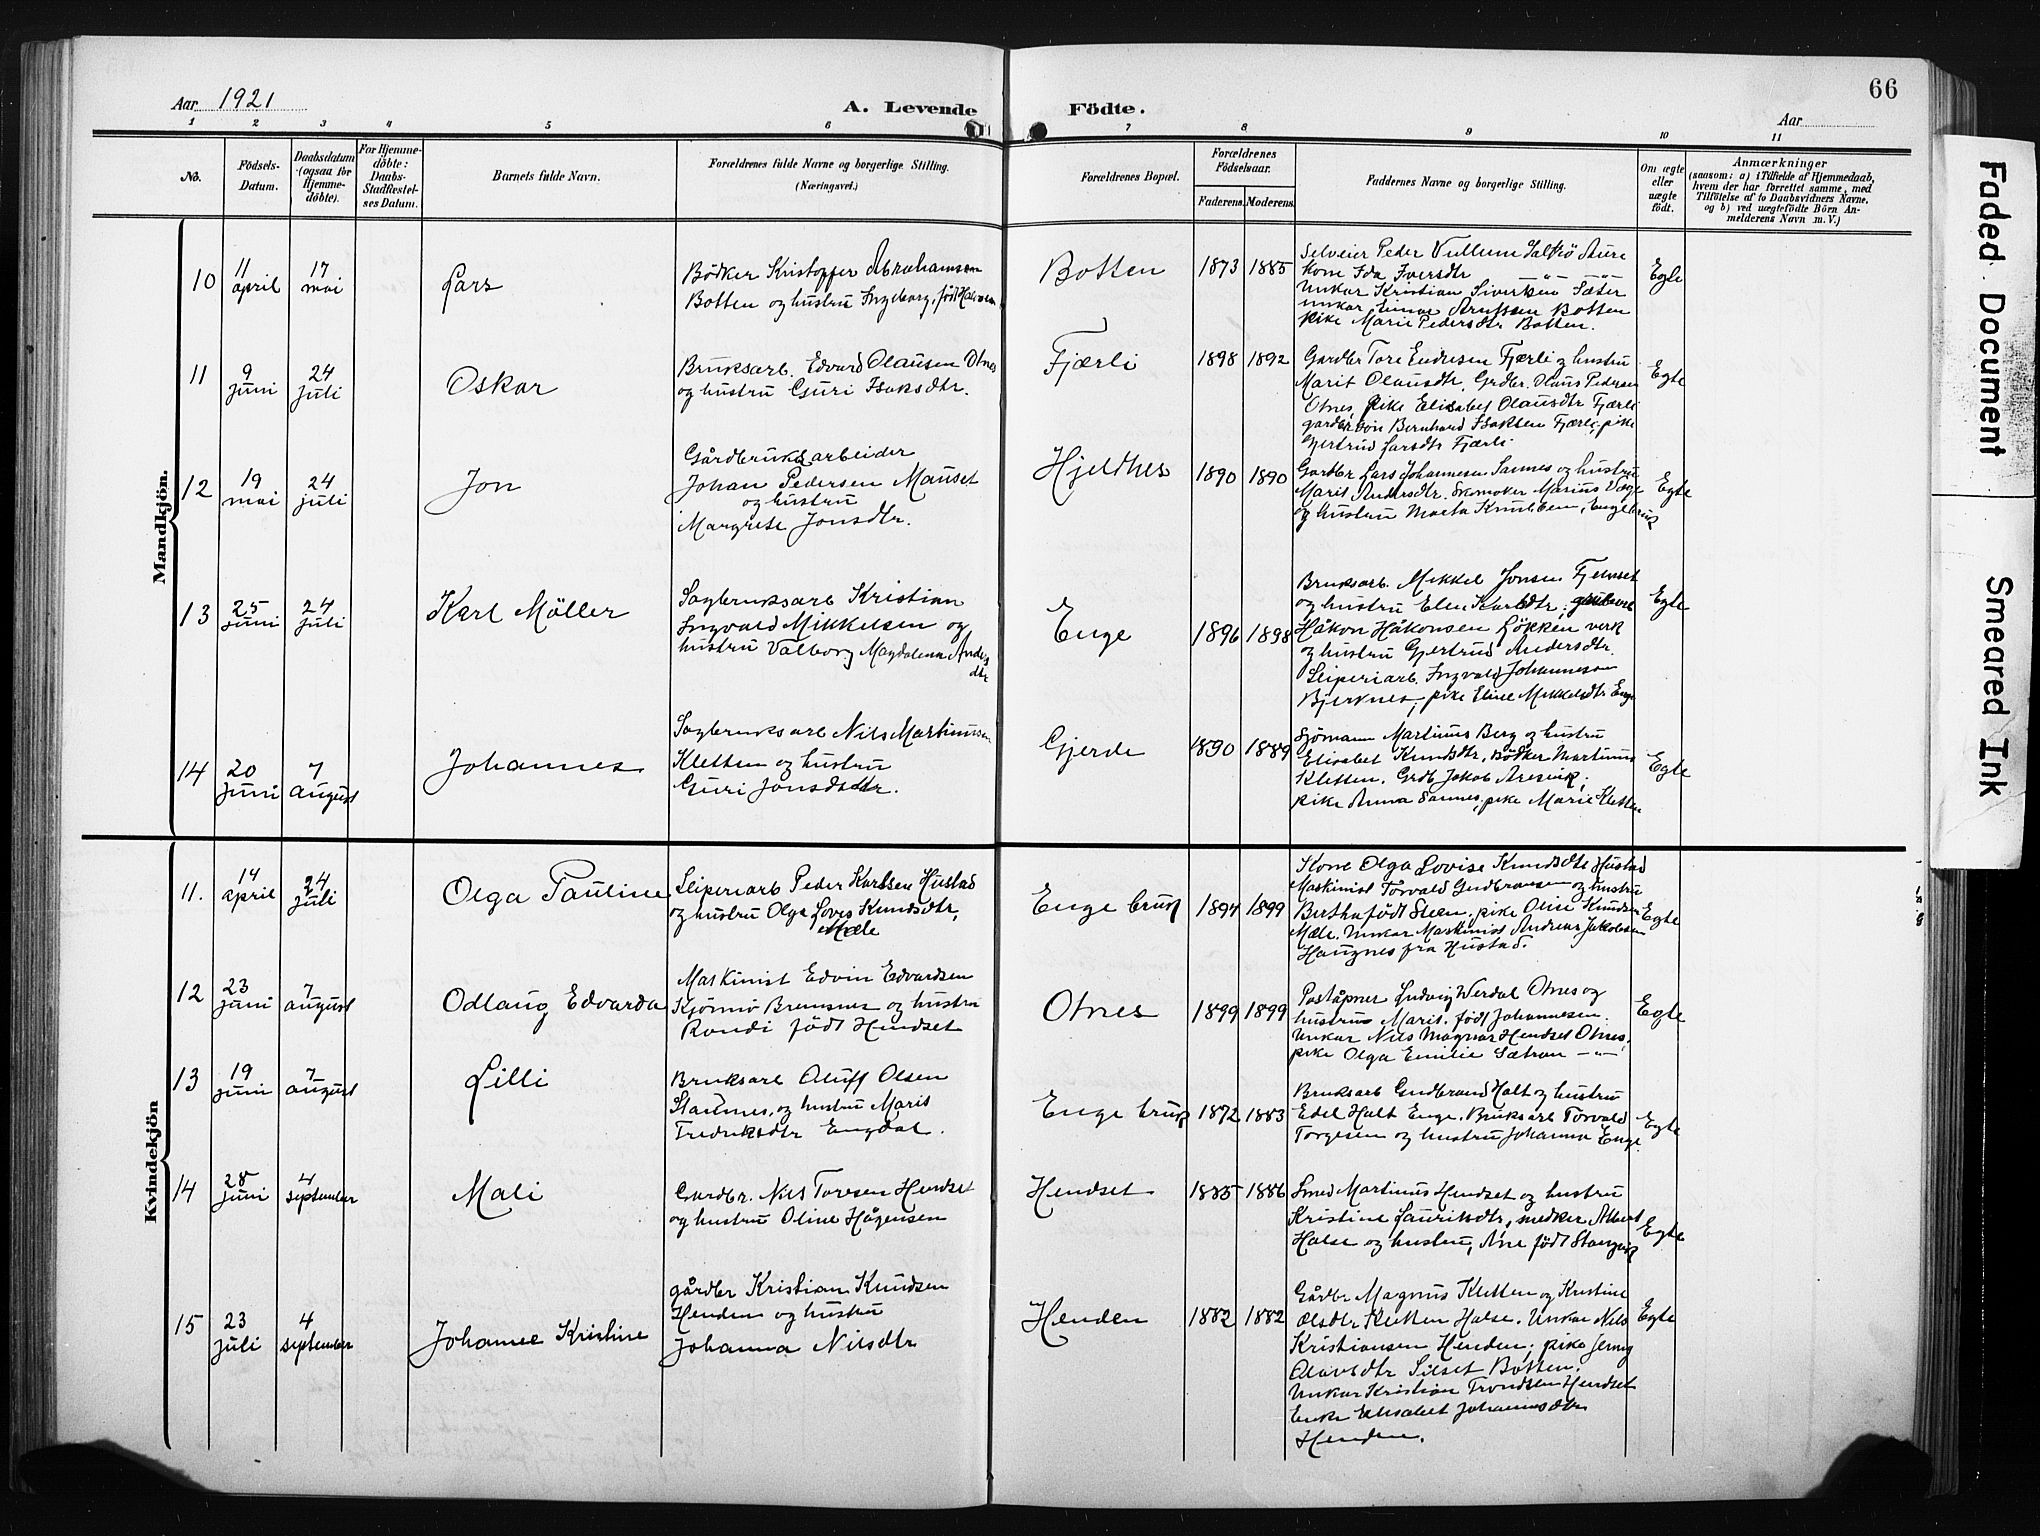 66
Aar 1921
A. Levende Födte.
Aar
1 2 3 4 5 6 7 8 9 10 11
No.
Födsels-Datum.
Daabsdatum (ogsaa for Hjemme-döbte).
For Hjemme-döbte: Daabs-Stadfæstel-ses Datum.
Barnets fulde Navn.
Forældrenes fulde Navne og borgerlige Stilling.
(Næringsvei.)
Forældrenes Bopæl.
Forældrenes Födselsaar.
Faderens. Moderens.
Faddernes Navne og borgerlige Stilling.
Om ægte eller uægte födt.
Anmærkninger
(saasom: a) i Tilfælde af Hjemmedaab,
hvem der har forrettet samme, med
Tilföielse af to Daabsvidners Navne,
og b) ved uægtefödte Börn An-
melderens Navn m. V.)
Mandkjön.
10
11 april
17 mai
Lars
Bödker Kristoffer Abrahamsen
Botten og hustru Ingeborg, född
Botten
1873 1885
Selveier Peder Vullum Aure
Kone Ida Iversdtr
Unkar Kristian Siversen Sæter
unkar Einar Botten
Pike Marie Pedersdtr Botten.
Egte
11
9 juni
24 juli
Oskar
Bruksarb. Edvard Olausen Otnes
og hustru Guri Isaksdtr.
Fjærli
1898 1892
Gardbr Tore Endresen Fjærli og hustru
Marit Olausdtr. Grdbr. Olaus Pedersen
Otnes, pike Elisabet Olausdtr Fjærli
gardbr.sön Bernhard Isaksen Fjærli, pike
Gjertrud Larsdtr Fjærli.
Egte
12
19 mai
24 juli
Jon
Gårdbruksarbeider
Johan Pedersen Mauset
og hustru
Margrete Jonsdtr.
Hjeldnes
1890 1890
Gardbr Lars Johannesen Sannes og hustru
Marit Andersdtr. Skomaker Marius
og hustru Marta Knutsen, Engebruk
Egte
13
25 juni
24 juli
Karl Möller
Sagbruksarb Kristian
Ingvald Mikkelsen og
hustru Valborg Magdalena Anders
dtr
Enge
1896 1898
Bruksarb. Mikkel Jonsen Fjelvset
og hustru Elen Karlsdtr;
Håkon Håkonsen Lökken verk
og hustru Gjertrud Andersdtr.
Sliperiarb. Ingvald Johannesen
Bjerknes, pike Eline Mikkelsdtr Enge
Egte
14
20 juni
7 august
Johannes
Sagbruksarb Nils Martinusen
Kletten og hustru
Guri Jonsdatr.
Gjerde
1890 1889
Sjömann Martinus Berg og hustru
Elisabet Knudsdtr, Bödker Martinus
Kletten. Grdb Jakob Aresvik;
pike Anna Sannes, pike Marie Kletten
Egte
Kvindekjön
11.
14 april
24 juli
Olga Pauline
Sliperiarb Peder Karlsen Hustad
og hustru Olga Lovis Knudsdtr,
Mæle
Enge bruk
1894 1899
Kone Olga Lovise Knudsdtr Hustad
Maskinist Torvald Gudbransen og hustru
Berthe född Steen, pike Olise Knudsen
Mæle. Unkar Maskinist Andreas Jakobsen
Haugnes fra Hustad.
Egte
12
23 juni
7 august
Odlaug Edvarda
Maskinist Edvin Edvardsen
Bremsnes og hustru
Randi född Hendset
Otnes
1899 1899
Poståpner Ludvig Werdal Otnes og
hustru Marit. född Johannesen.
Unkar Nils Magnar Hendset Otnes,
pike Olga Emilie Sætran —"—
Egte
13
19 juni
7 august
Lilli
Bruksarb Oluff Olsen
Staumes, og hustru Marit
Fredriksdtr Engdal.
Enge bruk
1872 1883
Bruksarb Gudbrand Holt og hustru
Edel Holt Enge. Bruksarb Torvald
Torgesen og hustru Johanna Enge.
Egte
14
28 juni
4 september
Mali
Gardbr. Nils Toresen Hendset
og hustru Oline Hågensen
Hendset
1885 1886
Smed Martinus Hendset og hustru
Kristine Lauritsdtr, snedker Albert
Halse og hustru, Ane född Stangvik
Egte
15
23 juli
4 september
Johanne Kristine
gårdbr Kristian Knudsen
Henden og hustru
Johanna Nilsdtr
Henden
1882 1882
Gårdbr Magnus Kletten og Kristine
Olsdtr Kletten Halse. Unkar Nils
Kristiansen Henden, pike Jenny
Olavsdtr Silset Botten.
Unkar Kristian Trondsen Hendset
Enke Elisabet Johannesdtr
Henden.
Egte
Faded Document
Smeared Ink